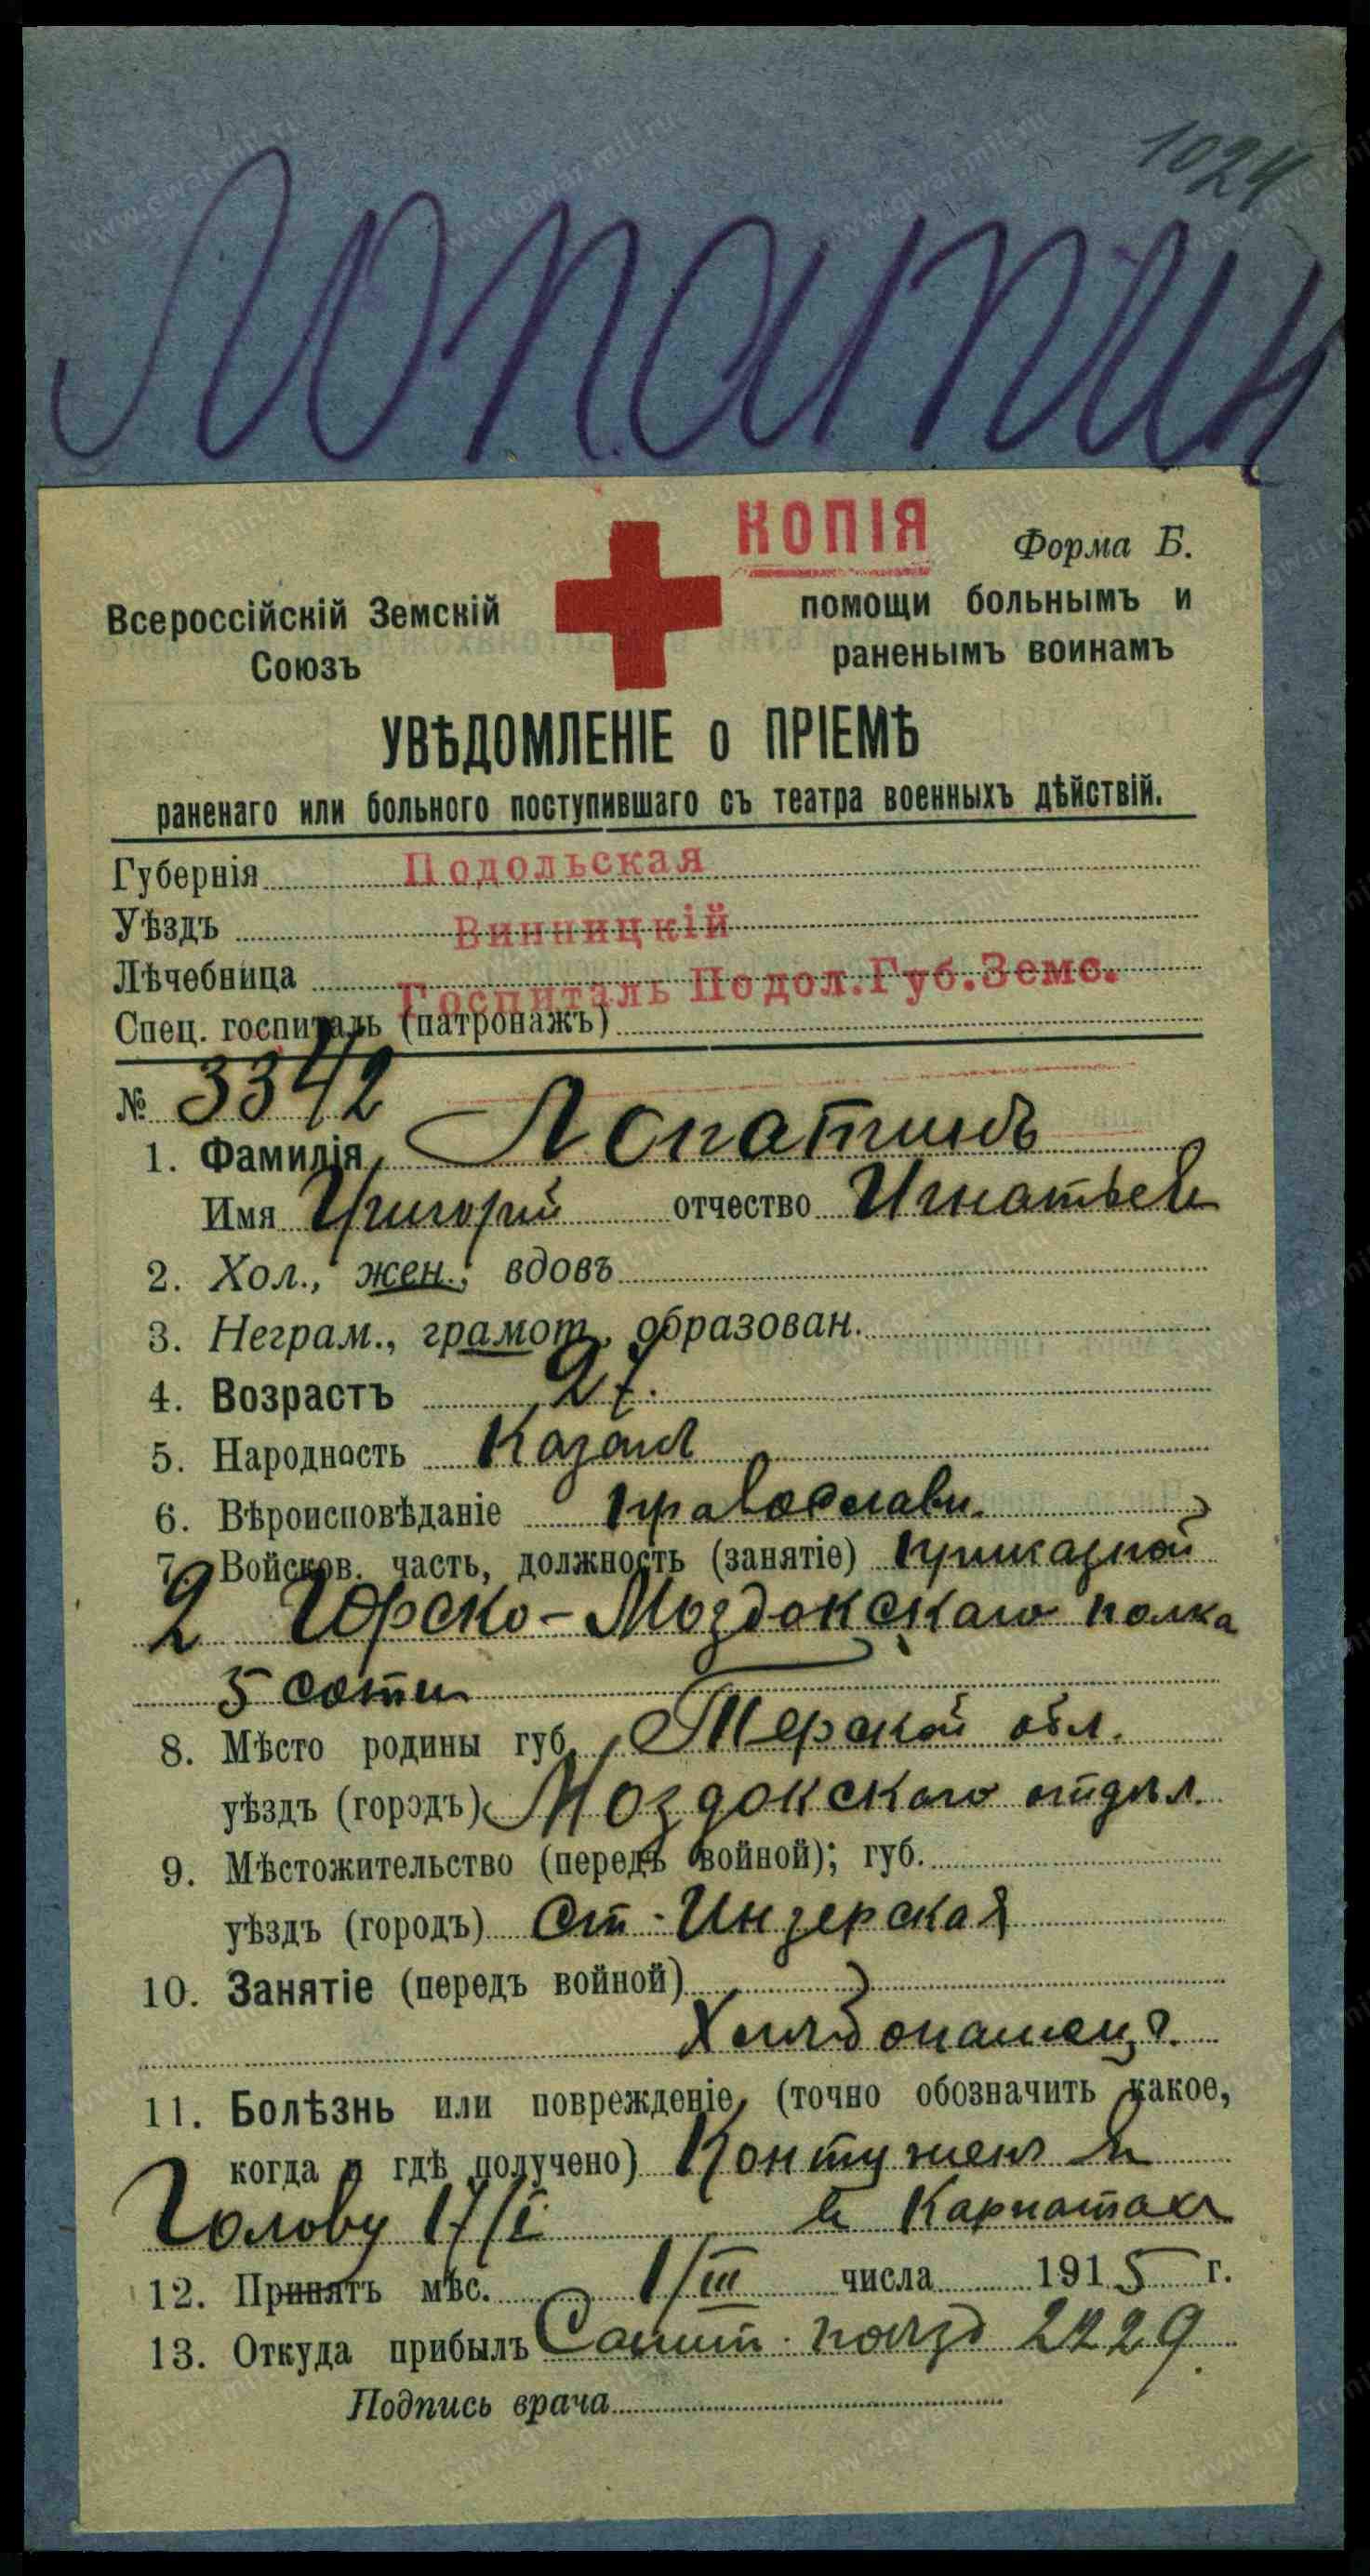 1024
Лопатин
КОПІЯ
Форма Б.
Всероссійскій Земскій
Союзъ
помощи больнымъ и
раненымъ воинамъ
УВѢДОМЛЕНІЕ о ПРІЕМѢ
раненаго или больного поступившаго съ театра военныхъ дѣйствій.
Губернія Подольская
Уѣздъ Винницкій
Лѣчебница Госпиталь Подол.Губ.Земс.
Спец. госпиталь (патронажъ)
№ 3342
1. Фамилія Лопатинъ
Имя Григорій отчество Игнатьев
2. Хол., жен., вдовъ
3. Неграм., грамот., образован.
4. Возрастъ 27.
5. Народность Казакъ
6. Вѣроисповѣданіе православн.
7. Войсков. часть, должность (занятіе) приказной
2 Горско-Моздокскаго полка
5 сотни
8. Мѣсто родины губ. Терской обл.
уѣздъ (городъ) Моздокскаго отдѣл.
9. Мѣстожительство (передъ войной); губ.
уѣздъ (городъ) Ст.
10. Занятіе (передъ войной)
Хлѣбопашец.
11. Болѣзнь или поврежденіе, (точно обозначить какое,
когда и гдѣ получено) Контужен в
Голову 17/I в Карпатахъ
12. Принятъ мѣс. 1/III числа 1915 г.
13. Откуда прибылъ Санит. поѣзд
Подпись врача
www.gwar.mil.ru